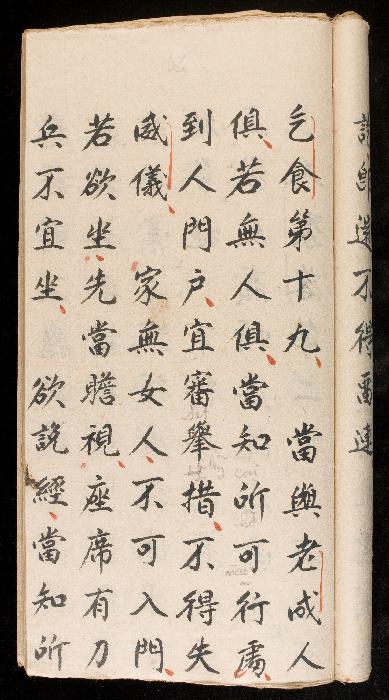 請即還不得留連
乞食第十九當與老成人
俱若無人俱當知所可行處
到人門戶宜審舉措不得失
威儀家無女人不可入門
若欲坐先當瞻視座席有刀
兵不宜坐欲說經當知所